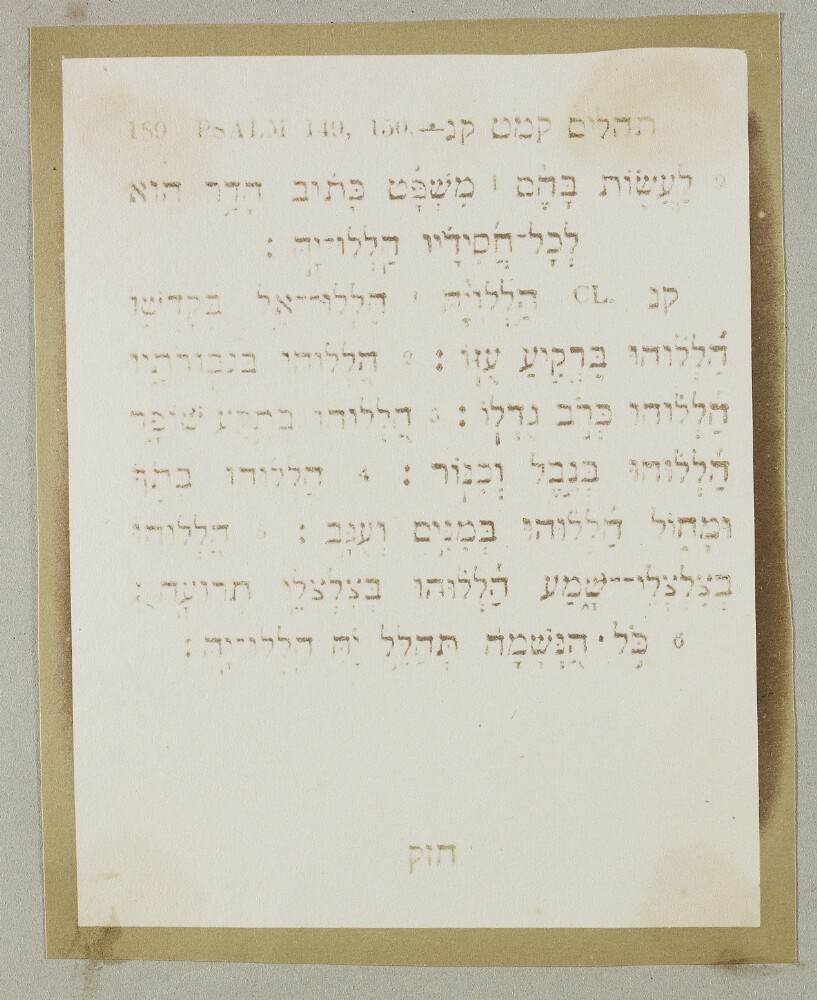 189 PSALM 149, 150.—תהלים קמט קנ
9 לַעֲשׂוֹת בָּהֶם ׀ מִשְׁפָּט כָּתוּב הָדָר הוּא
לְכָל־חֲסִידָיו הַלְלוּ־יָהּ :
קנ CL. הַלְלוּיָהּ ׀ הַלְלוּ־־אֵל בְּקָדְשׁוֹ
הַלְלוּהוּ בִּרְקִיעַ עֻזּוֹ : 2 הַלְלוּהוּ בִגְבוּרֹתָיו
הַלְלוּהוּ כְּרֹב גֻּדְלוֹ : 3 הַלְלוּהוּ בְּתֵקַע שׁוֹפָר
הַלְלוּהוּ בְּנֵבֶל וְכִנּוֹר : 4 הַלְלוּהוּ בְתֹף
וּמָחוֹל הַלְלוּהוּ בְּמִנִּים וְעֻגָב : 5 הַלְלוּהוּ
בְצִלְצְלֵי־־שָׁמַע הַלְלוּהוּ בְּצִלְצְלֵי תְרוּעָה :
6 כֹּל הַנְּשָׁמָה תְּהַלֵּל יָהּ הַלְלוּ־יָהּ :
חזק